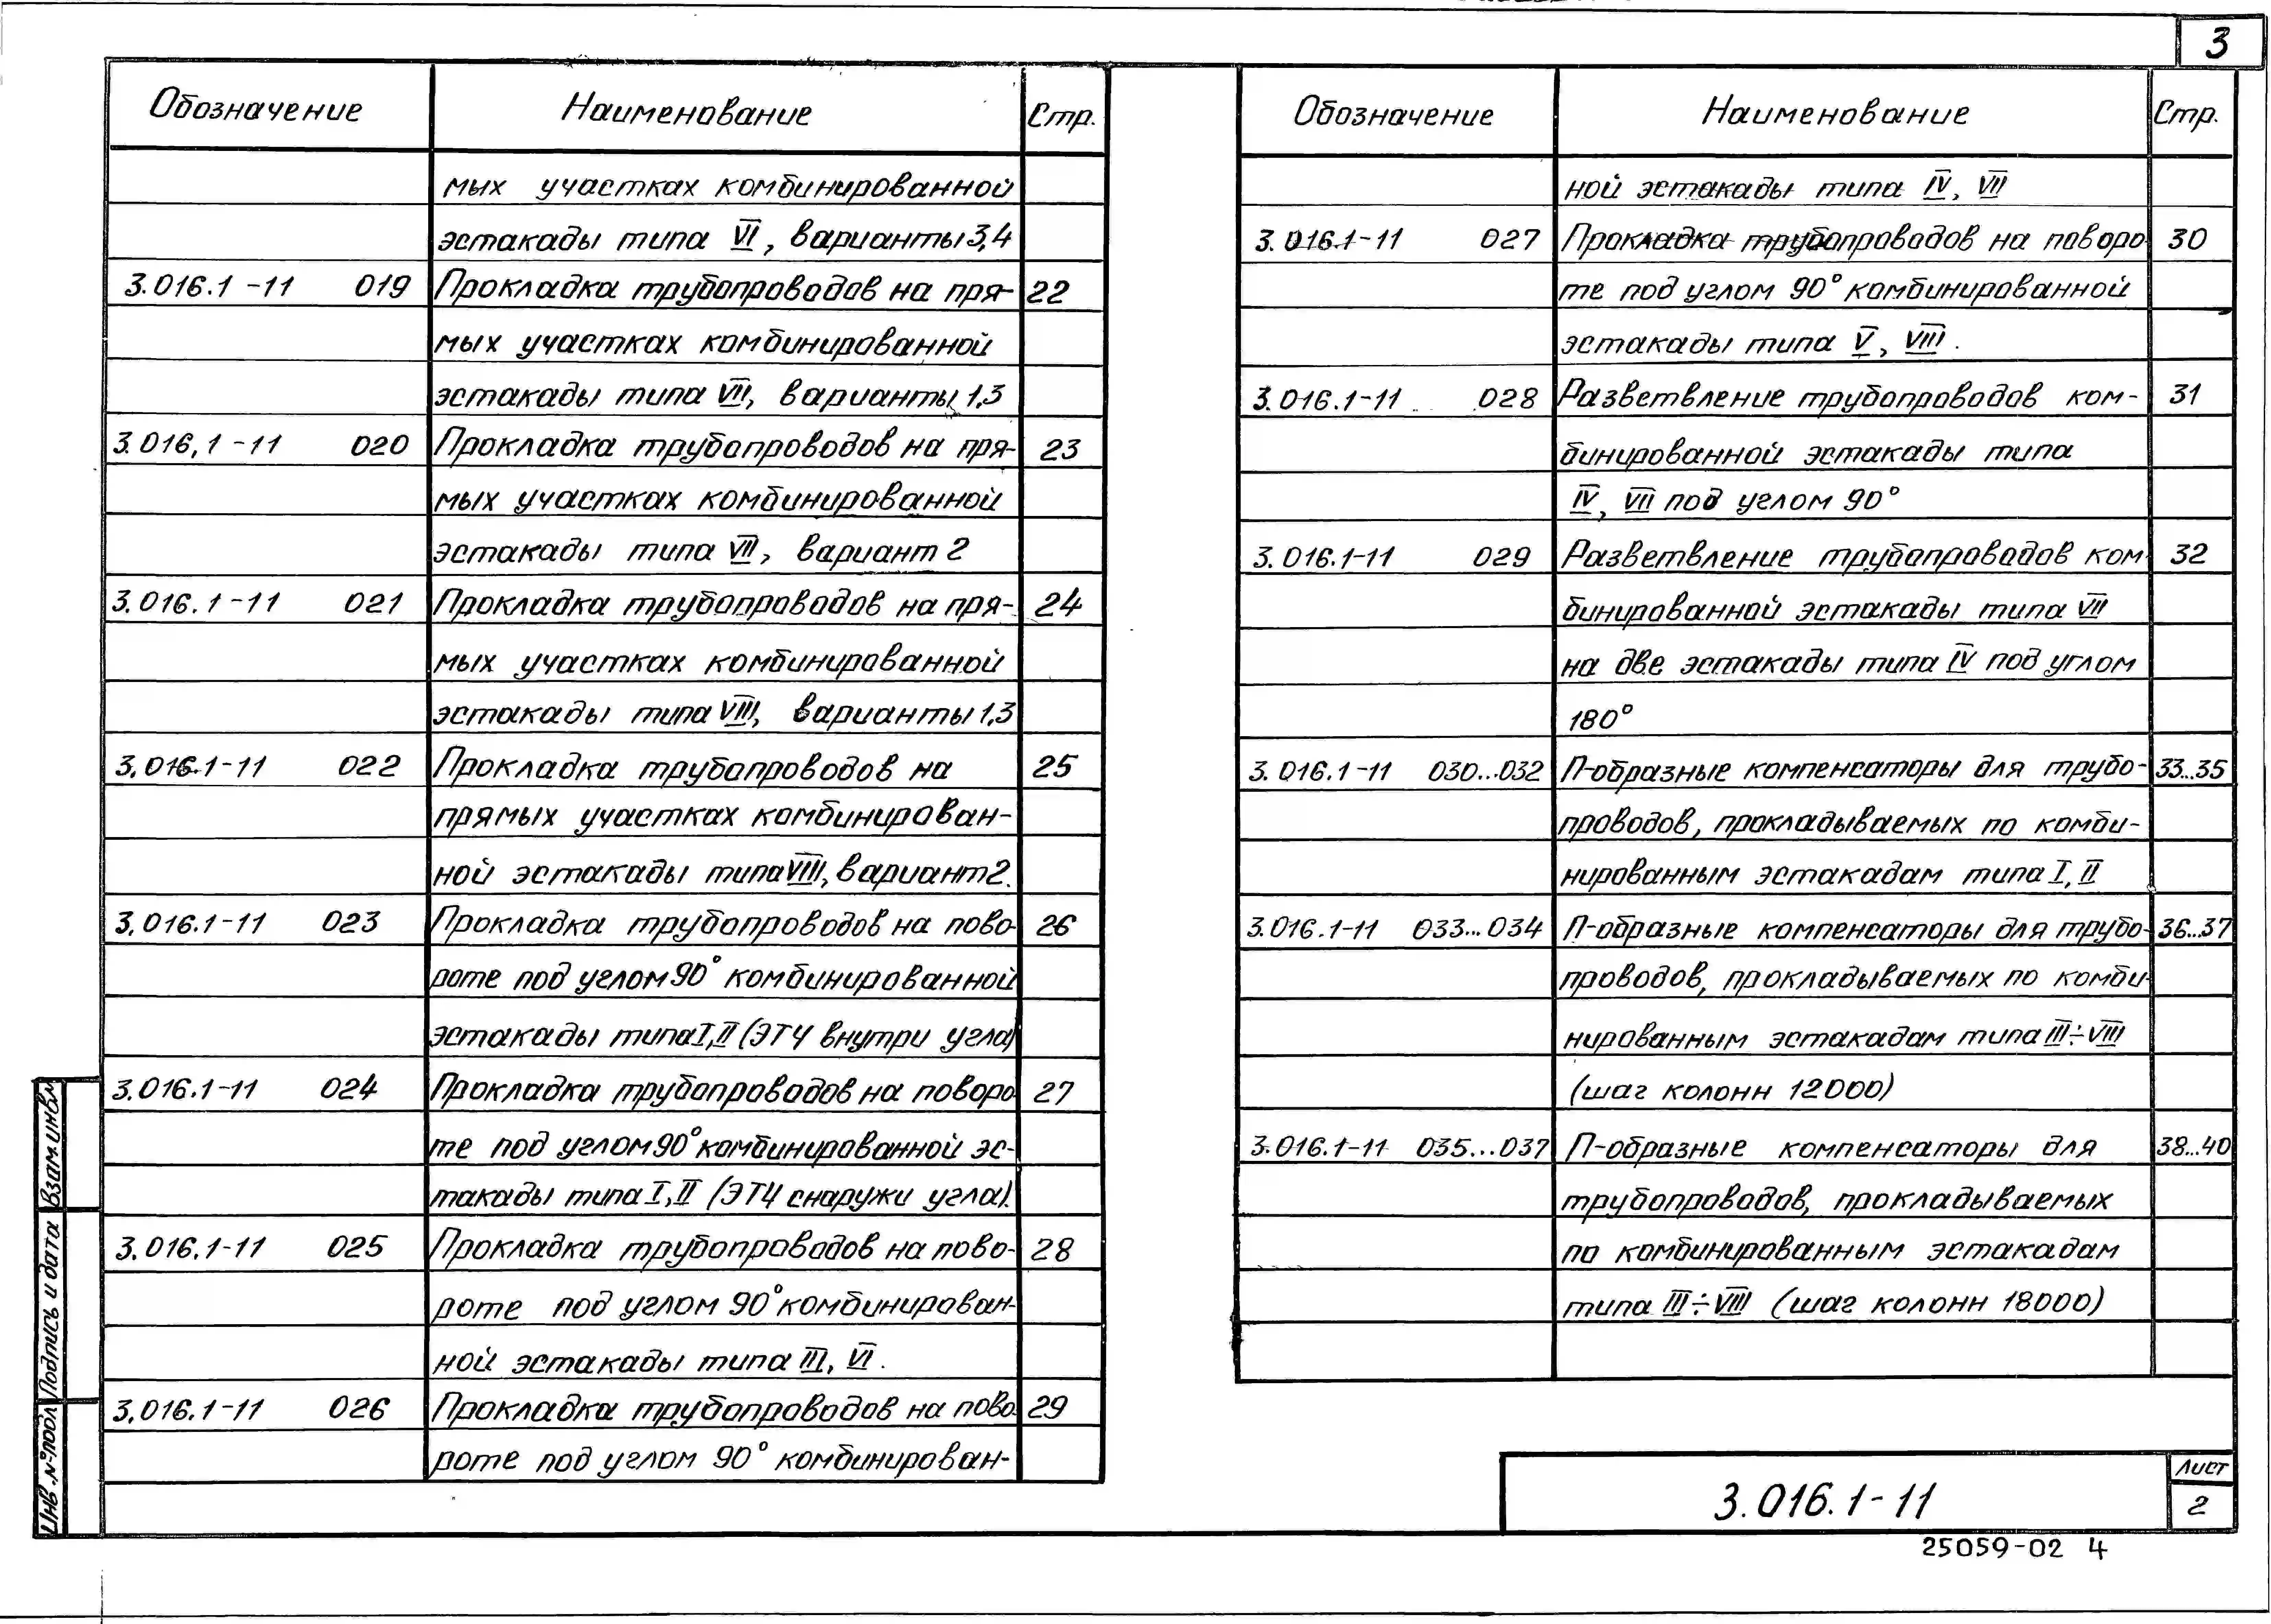 3
Обозначение Наименование Стр.
мых участках комбинированной
эстакады типа VI, варианты 3,4
3.016.1-11 019 Прокладка трубопроводов на пря- 22
мых участках комбинированной
эстакады типа VII, варианты 1,3
3.016.1-11 020 Прокладка трубопроводов на пря- 23
мых участках комбинированной
эстакады типа VII, вариант 2
3.016.1-11 021 Прокладка трубопроводов на пря- 24
мых участках комбинированной
эстакады типа VIII, варианты 1,3
3.016.1-11 022 Прокладка трубопроводов на 25
прямых участках комбинирован-
ной эстакады типа VIII, вариант 2.
3.016.1-11 023 Прокладка трубопроводов на пово- 26
роте под углом 90° комбинированной
эстакады типа I, II (ЭТЧ внутри угла)
3.016.1-11 024 Прокладка трубопроводов на поворо 27
те под углом 90° комбинированной эс-
такады типа I, II (ЭТЧ снаружи угла).
3.016.1-11 025 Прокладка трубопроводов на пово- 28
роте под углом 90° комбинирован-
ной эстакады типа III, VI.
3.016.1-11 026 Прокладка трубопроводов на пово- 29
роте под углом 90° комбинирован-
Обозначение Наименование Стр.
ной эстакады типа IV, VII
3.016.1-11 027 Прокладка трубопроводов на поворо 30
те под углом 90° комбинированной
эстакады типа V, VIII.
3.016.1-11 028 Разветвление трубопроводов ком- 31
бинированной эстакады типа
IV, VII под углом 90°
3.016.1-11 029 Разветвление трубопроводов ком- 32
бинированной эстакады типа VII
на две эстакады типа IV под углом
180°
3.016.1-11 030...032 П-образные компенсаторы для трубо- 33...35
проводов, прокладываемых по комби-
нированным эстакадам типа I, II
3.016.1-11 033...034 П-образные компенсаторы для трубо- 36...37
проводов, прокладываемых по комби-
нированным эстакадам типа III÷VIII
(шаг колонн 12000)
3.016.1-11 035...037 П-образные компенсаторы для 38...40
трубопроводов, прокладываемых
по комбинированным эстакадам
типа III÷VIII (шаг колонн 18000)
Взам.инв.№
Подпись и дата
Инв.№подл
3.016.1-11
Лист
2
25059-02 4